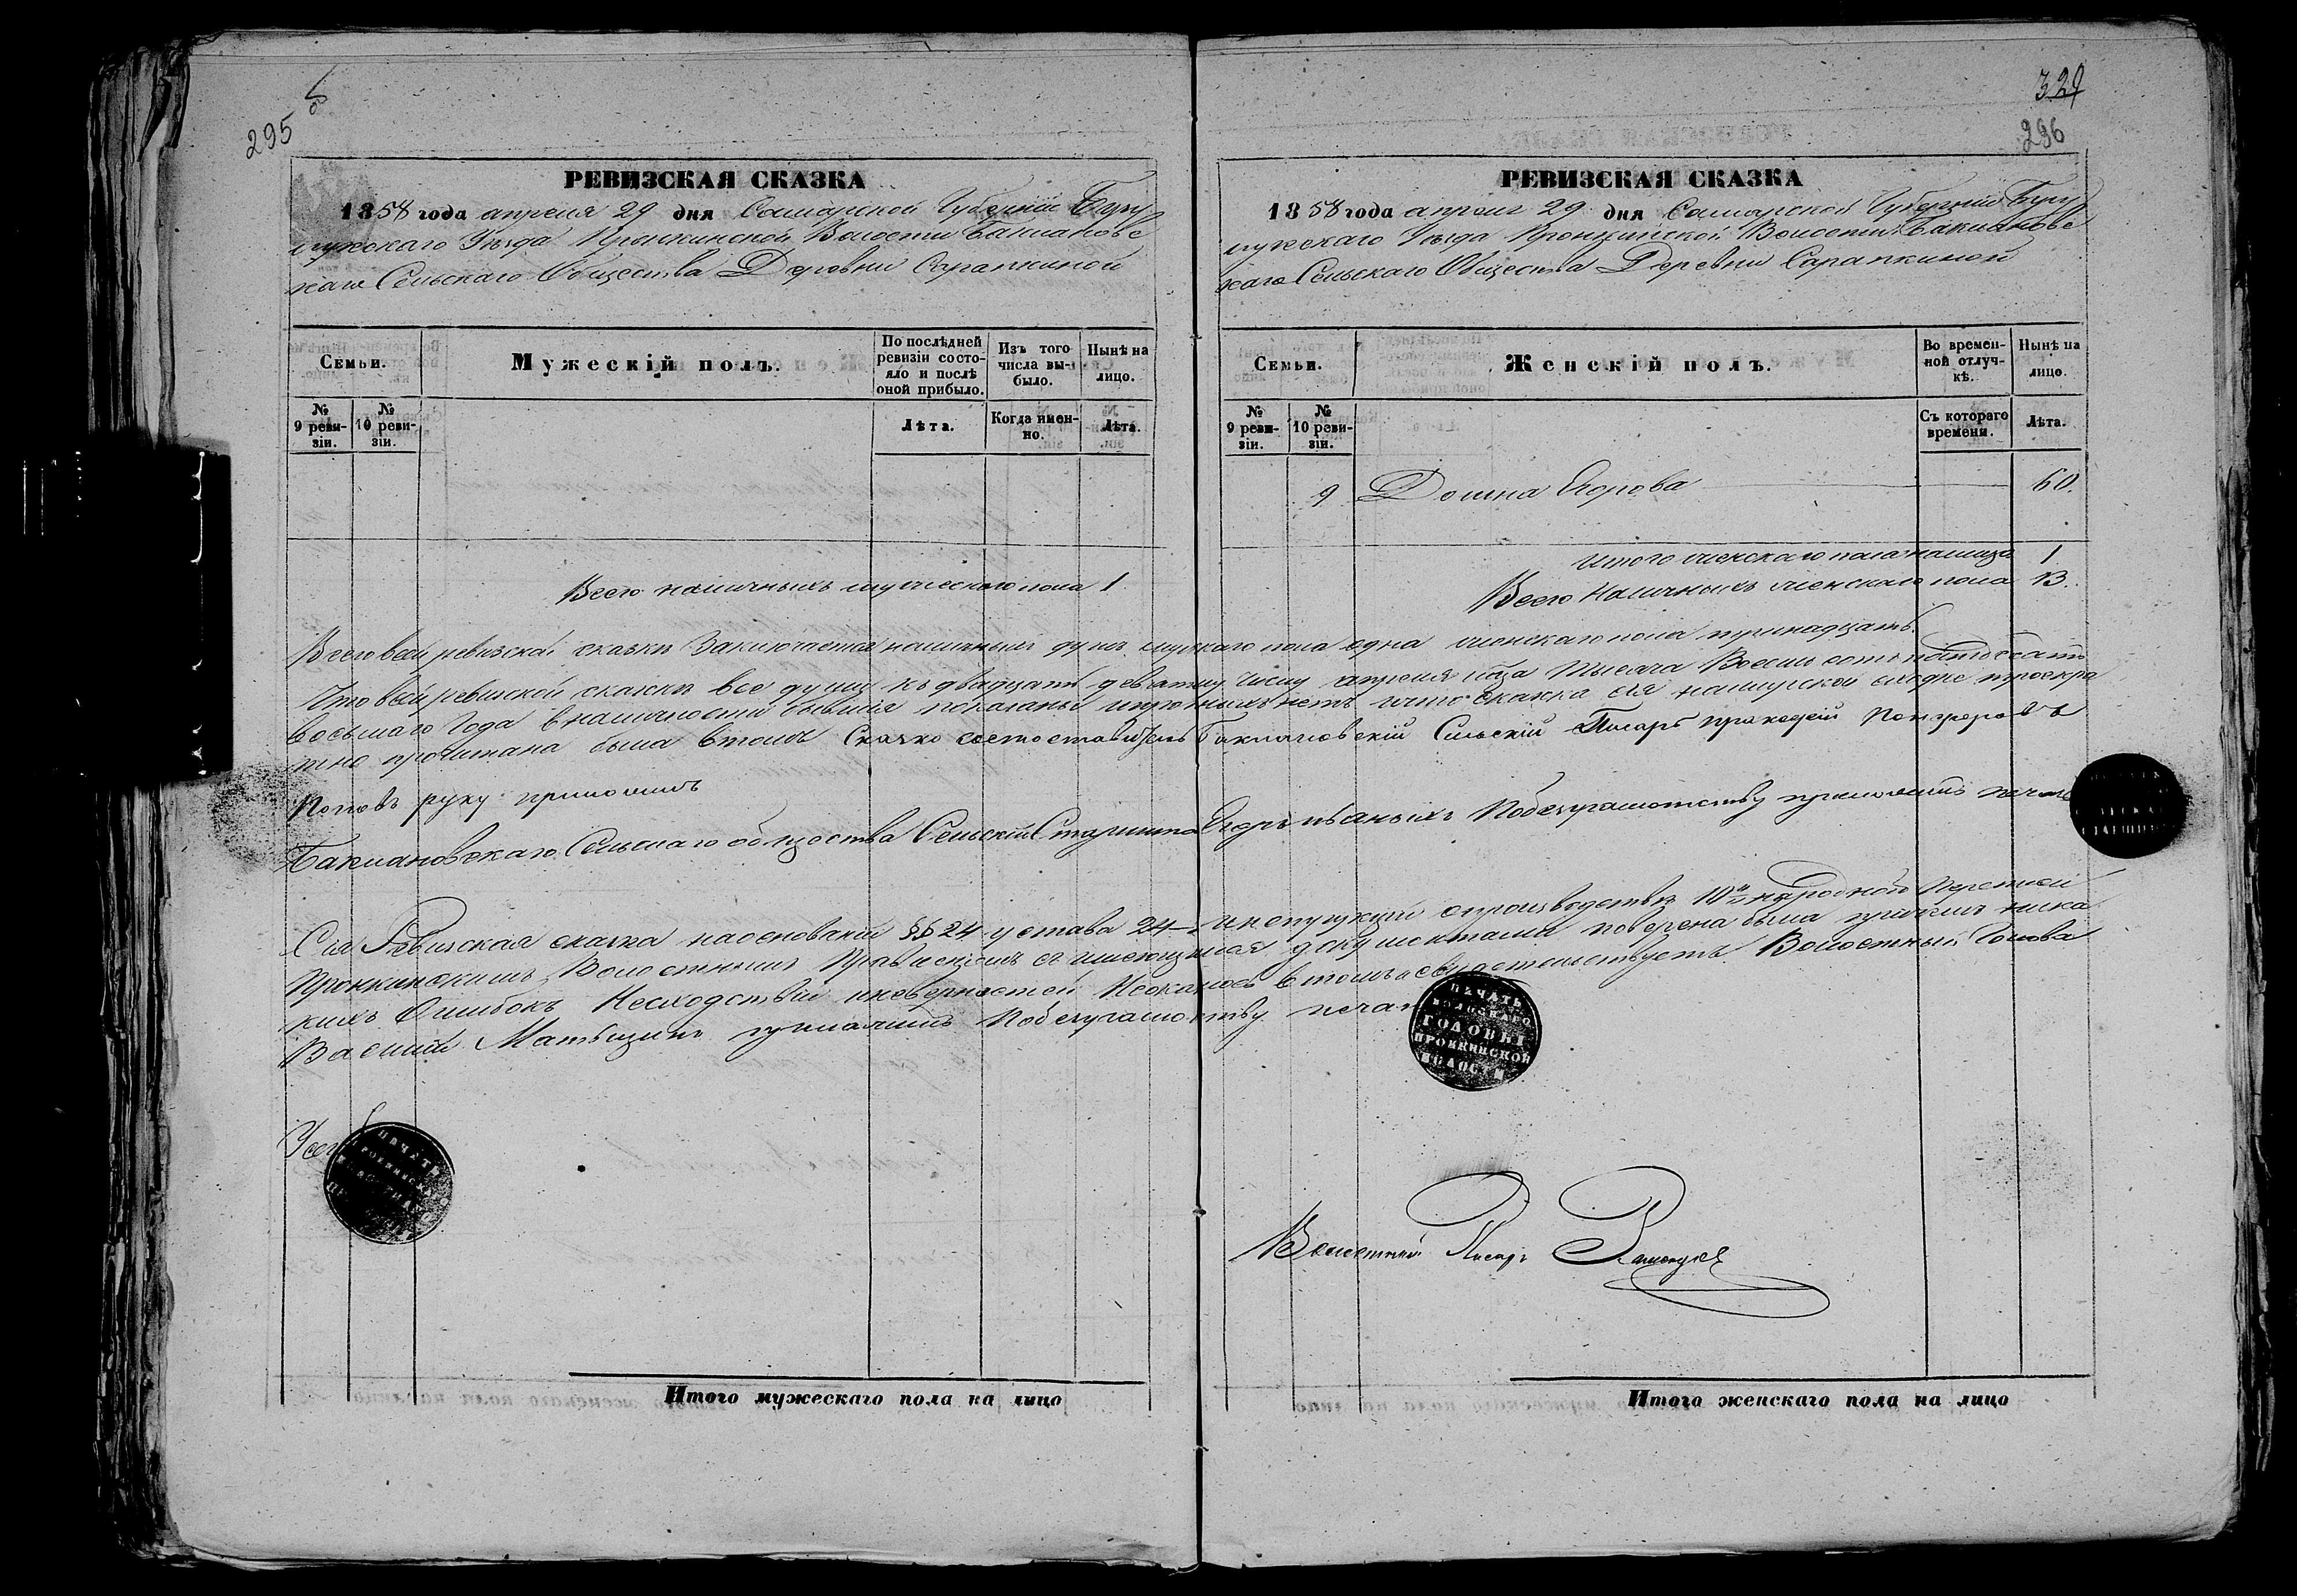 295 об
РЕВИЗСКАЯ СКАЗКА
1858 года апреля 29 дня Самарской Губернiи Бугу
русскаго Уѣзда Пронкинской Волости Баклановс
каго Сельскаго Общества Деревни Сарапкиной
Семьи.
Мужескiй полъ.
По послѣдней ревизiи состо-яло и послѣ оной прибыло.
Изъ того числа вы-было.
Нынѣ на лицо.
№ 9 реви-зiи.
№ 10 реви-зiи.
Лѣта.
Когда имен-но.
Лѣта.
Всего наличныхъ мужескаго пола 1
329
296
РЕВИЗСКАЯ СКАЗКА
1858 года апреля 29 дня Самарской Губернiи Бугу
русскаго Уѣзда Пронкинской Волости Баклановс
каго Сельскаго Общества Деревни Сарапкиной
Семьи.
Женскiй полъ.
Во времен-ной отлуч-кѣ.
Нынѣ на лицо.
№ 9 реви-зiи.
№ 10 реви-зiи.
Съ котораго времени.
Лѣта.
9 Домна Егорова 60.
Итого женскаго пола налицо 1
Всего Наличныхъ женскаго пола 13.
Всего в сей ревизской сказки Заключается наличныхъ душъ мужскаго пола одна женскаго пола тринадцать.
Что в сей ревизской сказки все души къ двадцать девятому числу апреля Тысяча Восемь сотъ пятьдесятъ
восьмаго Года в наличности бывшiя показаны и прописныхъ нетъ и что сказка сiя на мирской сходке троекра
тно прочитана была в томъ Сказко состоставитель Баклановскiй Сельскiй Писарь
Поповъ руку приложилъ
Баклановскаго Сельскаго общества Сельскiй Старшина Егоръ по безграмотству приложилъ печать
Сiя Ревизская сказка на основанiи §§ 24 устава 24 о производстве 10й народной Переписи
Пронкинскимъ Волостнымъ Правленiемъ с имеющимися документами поверена была причемъ ника
кихъ Ошибокъ Несходствiй и неверностей Неоказалось в томъ и свидетельствуетъ Волостный Голова
Василий приложилъ по безграмотству печать
ПЕЧАТЬ ВОЛОСНАГО ГОЛОВЫ ПРОНКИНСКОЙ ВОЛОСТИ
ПЕЧАТЬ
Волостный Писарь
Итого мужескаго пола на лицо
Итого женскаго пола на лицо